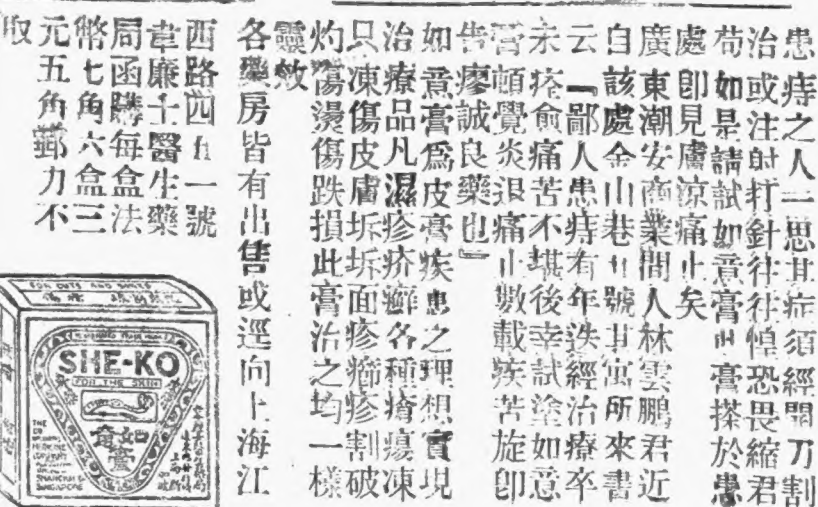 患痔之人一思其症須經開刀割
治或注射打針往往惶恐畏縮君
苟如是請試如意膏此膏搽於患
處即見膚涼痛止矣
廣東潮安商業間人林雲鵬君近
自該處金山巷十號其寓所來書
云『鄙人患痔有年迭經治療卒
未痊愈痛苦不堪後幸試塗如意
膏頓覺炎退痛止數載疾苦旋即
告瘳誠良藥也』
如意膏爲皮膏疾患之理想實現
治療品凡濕疹疥癬各種瘡瘍凍
只凍傷皮膚坼坼面疹癤疹割破
灼傷燙傷跌損此膏治之均一樣
靈效
各藥房皆有出售或逕向上海江
西路四五一號
韋廉士醫生藥
局函購每盒法
幣七角六盒三
元五角郵力不
取
FOR CUTS AND BURNS
SHE-KO
FOR THE SKIN
如意膏
THE
DR
WILLIAMS
MEDICINE
COMPANY
SHANGHAI &
SINGAPORE